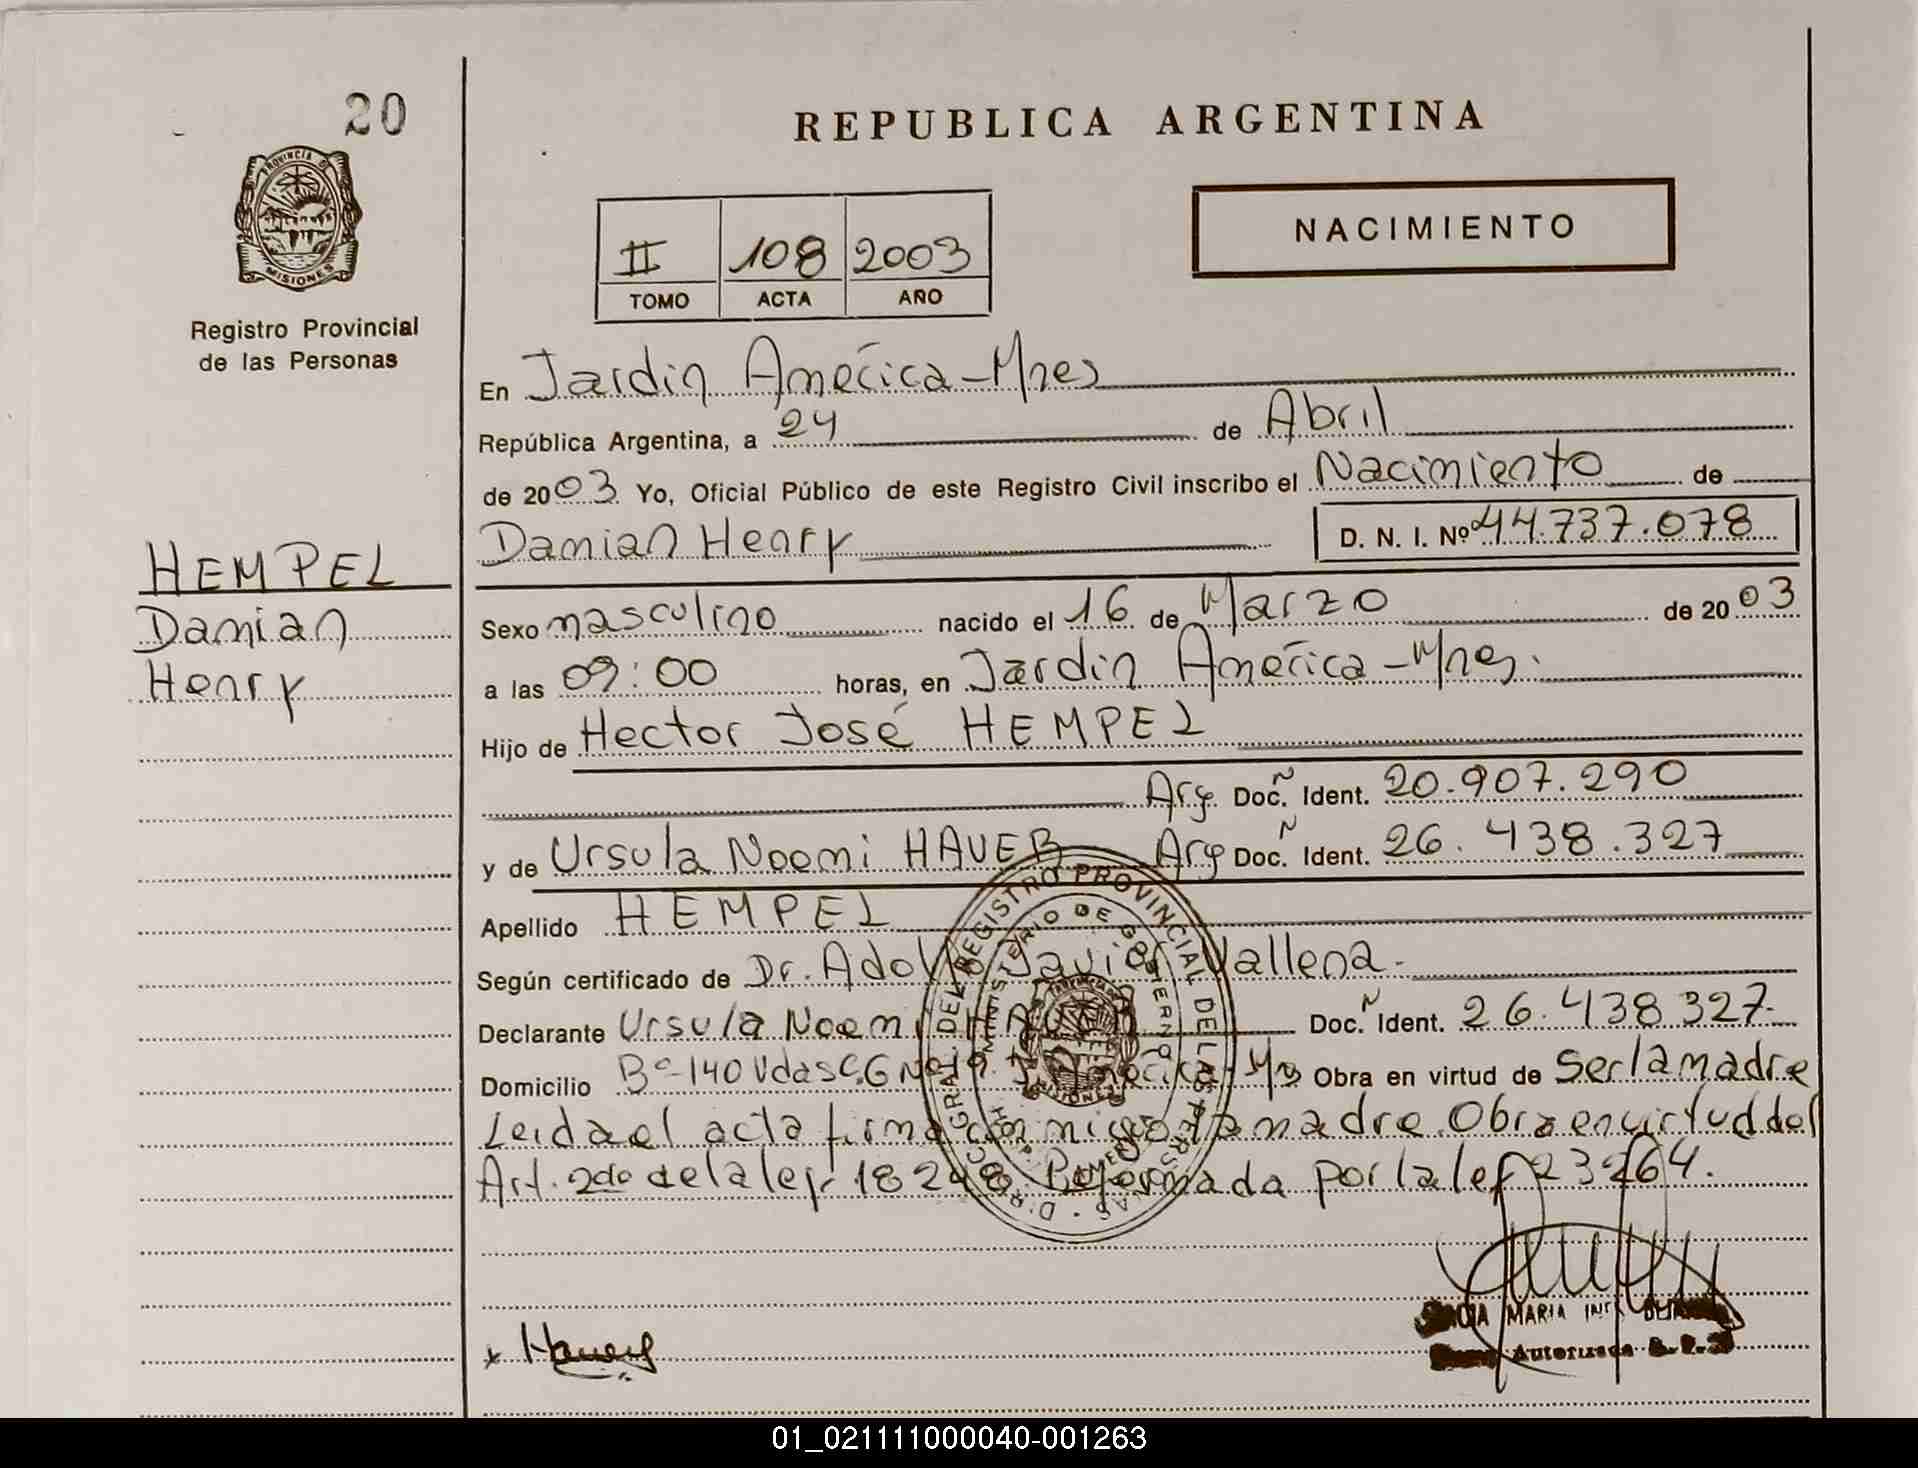 20
REPUBLICA ARGENTINA
PROVINCIA DE
MISIONES
Registro Provincial
de las Personas
II 108 2003
TOMO ACTA AÑO
NACIMIENTO
En Jardin América-Mnes
República Argentina, a 24 de Abril
de 2003 Yo, Oficial Público de este Registro Civil inscribo el Nacimiento de
Damian Henry D. N. I. Nº 44.737.078
HEMPEL
Damian
Henry
Sexo masculino nacido el 16 de Marzo de 2003
a las 09:00 horas, en Jardin América-Mnes.
Hijo de Hector José HEMPEL
Arg. Doc. Ident. 20.907.290
y de Ursula Noemi HAUER Arg Doc. Ident. 26.438.327
Apellido HEMPEL
Según certificado de Dr. Adolfo Javier Vallena.-
Declarante Ursula Noemi HAUER Doc. Ident. 26.438.327-
Domicilio Bº-140 Vdas Obra en virtud de Ser la madre
Leida el acta firma conmigo la madre. Obra en virtud del
Art. 2do de la ley 18248 Reformada por la ley 23264.
REGISTRO PROVINCIAL DE LAS PERSONAS
MINISTERIO DE GOBIERNO
MISIONES
MARIA
Autorizada
x Hauer
01_021111000040-001263